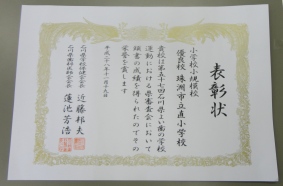 表彰状
小学校小規模校
優良校 珠洲市立直小学校
貴校は第五十七回石川県よい歯の学校
運動における県審査会において
頭書の成績を得られたのでその
栄誉を賞します
平成二十八年十一月十九日
石川県学校保健会会長
近藤邦夫
石川県歯科医師会会長
蓮池芳浩